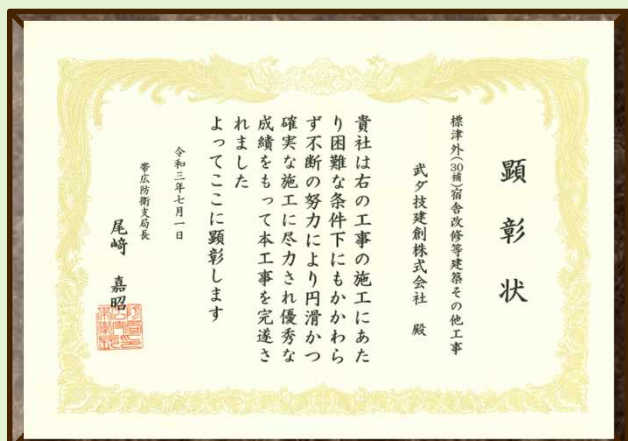 顕彰状
標津外(30補)宿舎改修等建築その他工事
武ダ技建創株式会社 殿
貴社は右の工事の施工にあた
り困難な条件下にもかかわら
ず不断の努力により円滑かつ
確実な施工に尽力され優秀な
成績をもって本工事を完遂さ
れました
よってここに顕彰します
令和三年七月一日
帯広防衛支局長
尾﨑 嘉昭